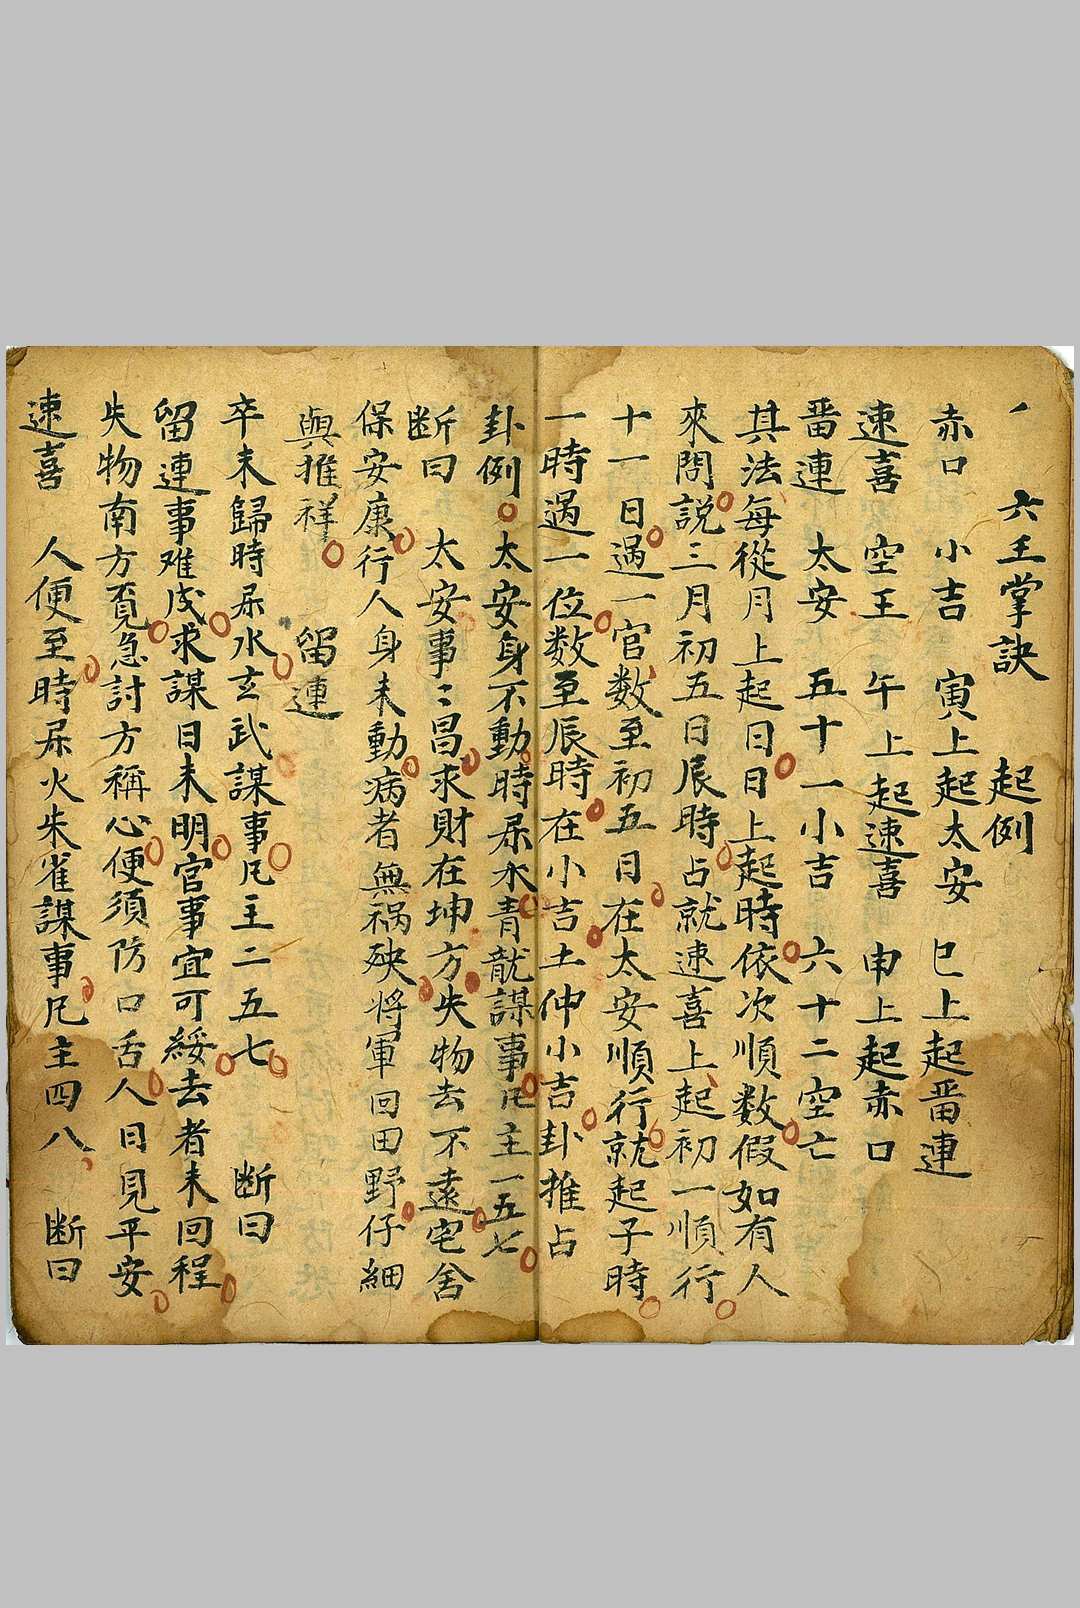 六壬掌訣　起例
赤口　小吉　寅上起太安　巳上起畱連
速喜　空王　午上起速喜　申上起赤口
畱連　太安　五十一小吉　六十二空亡
其法每從月上起日日上起時依次順数假如有人
來問説三月初五日辰時占就速喜上起初一順行
十一日過一官数至初五日在太安順行就起子時
一時過一位数至辰時在小吉土仲小吉卦推占
卦例太安身不動時屎水青龍謀事凡主一五七
断曰　太安事〻昌求財在坤方失物去不遠宅舍
保安康行人身未動病者無禍殃将軍回田野仔細
與推祥　留連
卒未歸時屎水玄武謀事凡主二五七　断曰
留連事难成求謀日未明官事宜可綏去者未回程
失物南方覔急討方稱心便須防口舌人目見平安
速喜　人便至時屎火朱雀謀事凡主四八　断曰